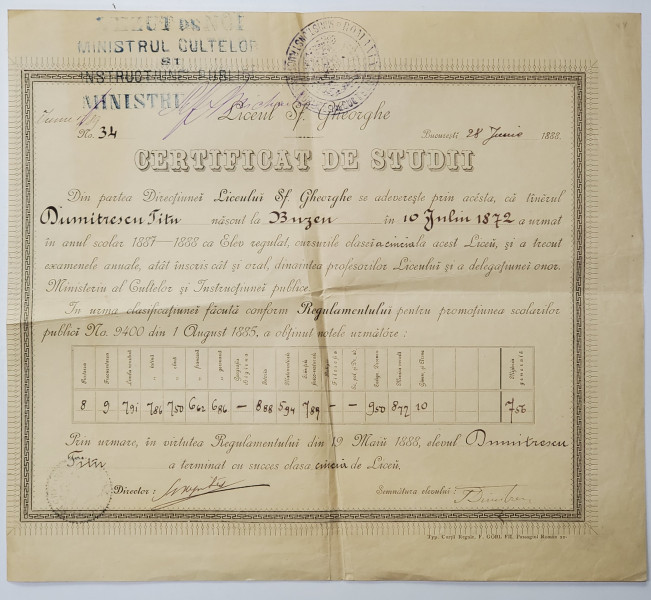 VEZUT DE NOI
MINISTRUL CULTELOR
ȘI
INSTRUCȚIUNE PUBLICE
MINISTRU
Liceul Sf. Gheorghe
No. 34
București 28 Junie 1888.
CERTIFICAT DE STUDII
Din partea Direcțiunei Liceului Sf. Gheorghe se adeverește prin acésta, că tînĕrul
Dumitrescu Titu născut la Buzeu în 10 Juliu 1872 a urmat
în anul școlar 1887—1888 ca Elev regulat, cursurile clasei a cincia la acest Liceŭ, și a trecut
examenele anuale, atât înscris cât și oral, dinaintea profesorilor Liceului și a delegațiunei onor.
Ministeriu al Cultelor și Instrucțiunei publice.
In urma clasificațiunei făcută conform Regulamentului pentru promoțiunea școlarilor
publici No. 9400 din 1 August 1885, a obținut notele următóre:
8 9 791 786 750 662 686 — 888 594 789 — — 950 872 10 756
Prin urmare, în virtutea Regulamentului din 19 Maiŭ 1888, elevul Dumitrescu
Titu a terminat cu succes clasa cincia de Liceŭ.
Director:
Semnătura elevului:
Typ. Curții Regale, F. GÖBL FII, Passagiul Român